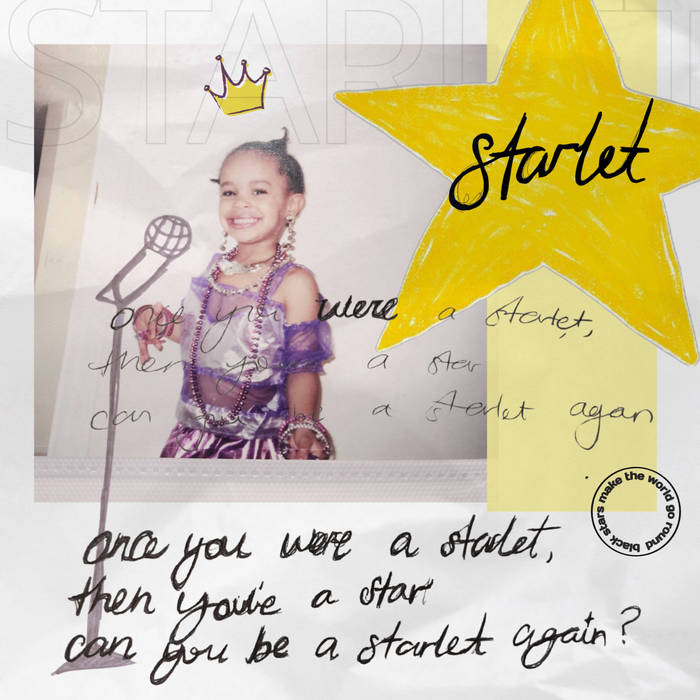 STARLET
starlet
once you were a starlet,
then you a star
can you be a starlet again
black stars make the world go round
once you were a starlet,
then you're a star
can you be a starlet again?